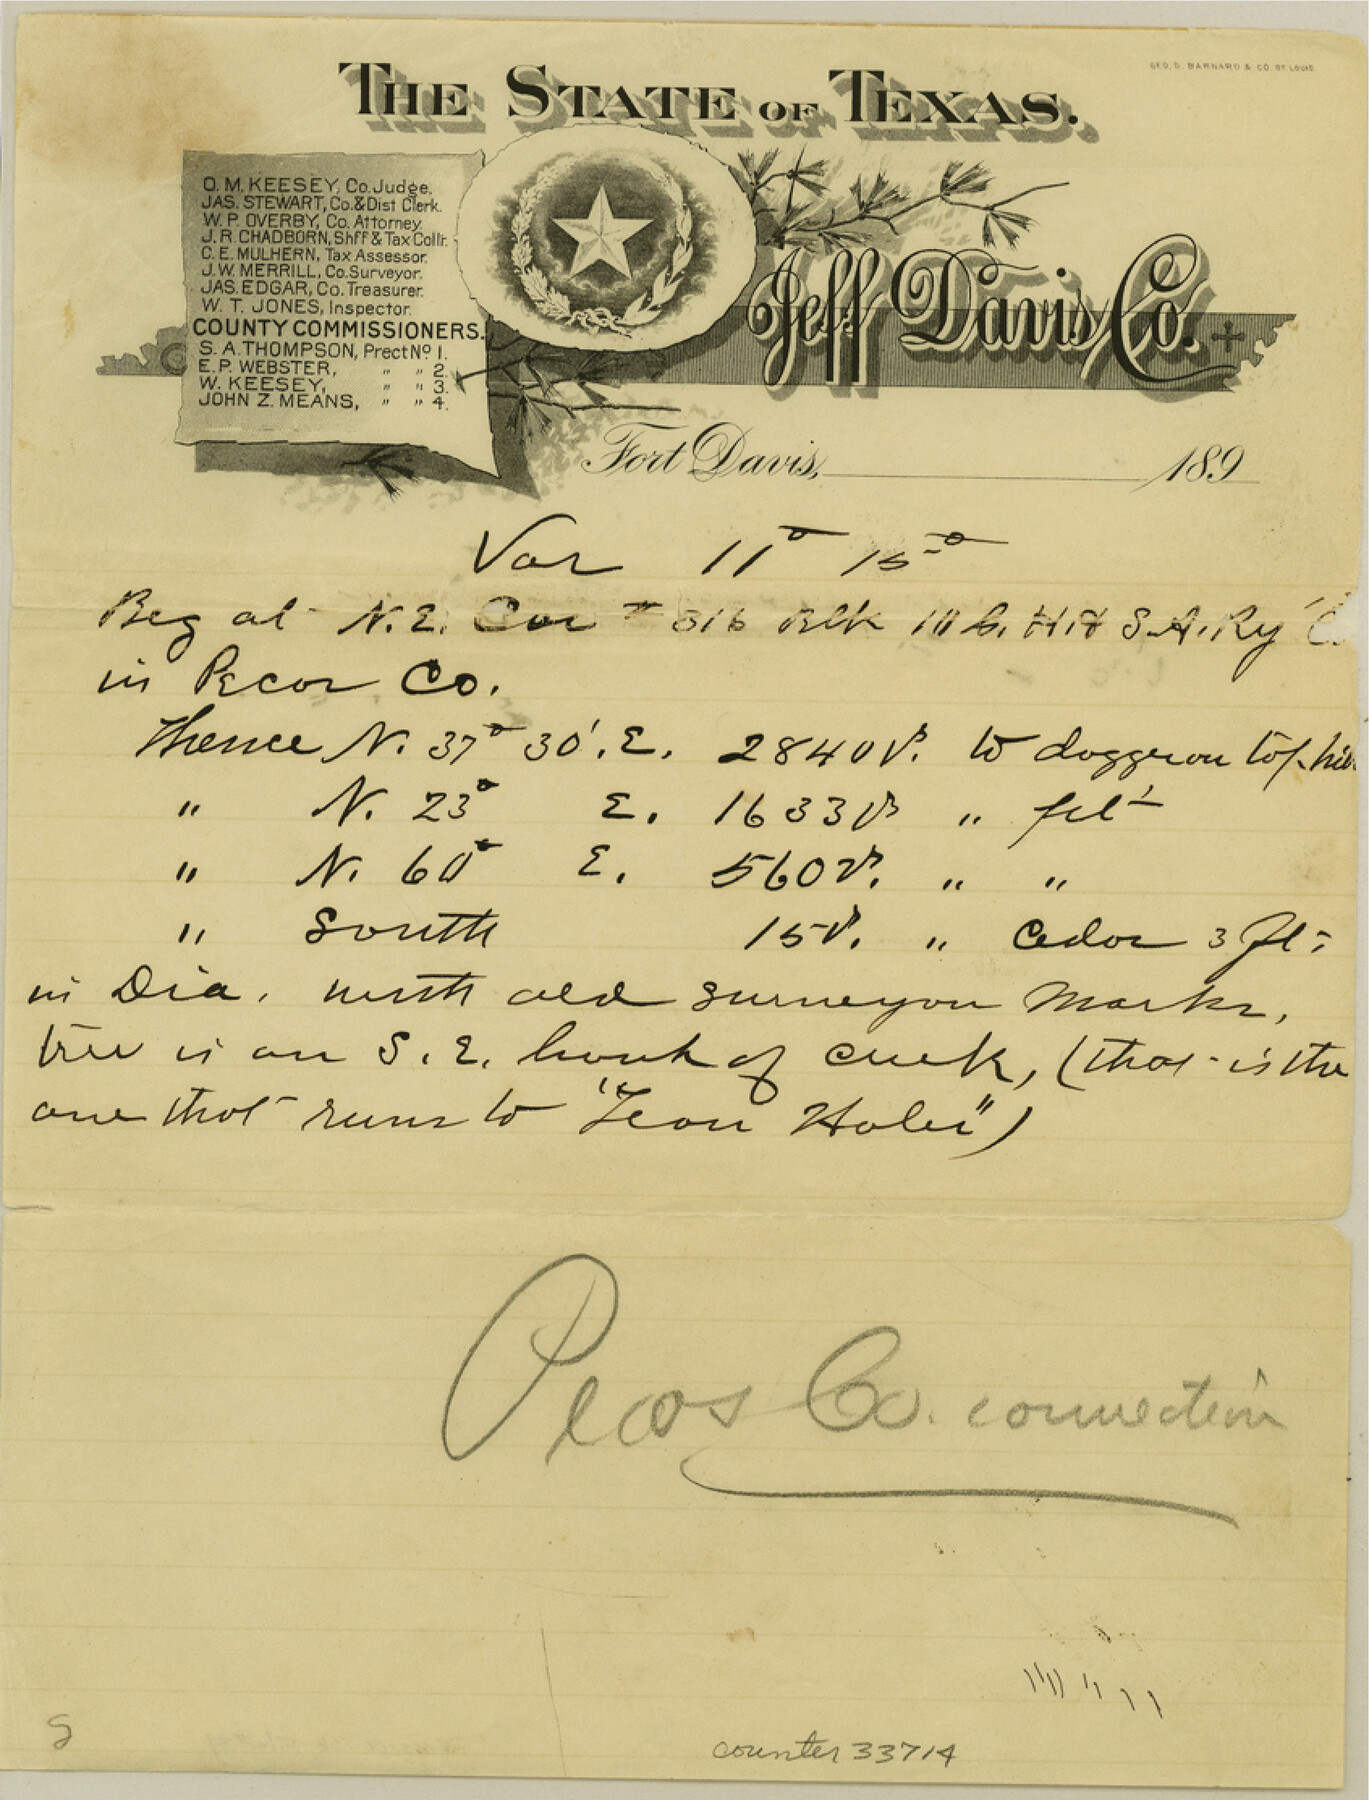 GEO. D. BARNARD & CO. ST. LOUIS.
THE STATE OF TEXAS.
O. M. KEESEY, Co. Judge.
JAS. STEWART, Co. & Dist Clerk.
W. P. OVERBY, Co. Attorney.
J. R. CHADBORN, Shff & Tax Collr.
C. E. MULHERN, Tax Assessor.
J. W. MERRILL, Co. Surveyor.
JAS. EDGAR, Co. Treasurer.
W. T. JONES, Inspector.
COUNTY COMMISSIONERS.
S. A. THOMPSON, Prect No 1.
E. P. WEBSTER, " " 2.
W. KEESEY, " " 3.
JOHN Z. MEANS, " " 4.
Jeff Davis Co.
Fort Davis, 189
Var 11° 15°
Beg at N.E. Cor # 316 Blk 10 G. H. & S. A. Ry
in Pecos Co.
Thence N. 37° 30'. E. 2840 v. to on top
" N. 23° E. 1633 v "
" N. 60° E. 560 v. " "
" South 15 v. " Cedar 3 ft
in Dia. with old surveyor marks,
tree is on S. E. bank of creek, (that is the
one that runs to "Leon Holes")
Pecos Co. connection
counter 33714